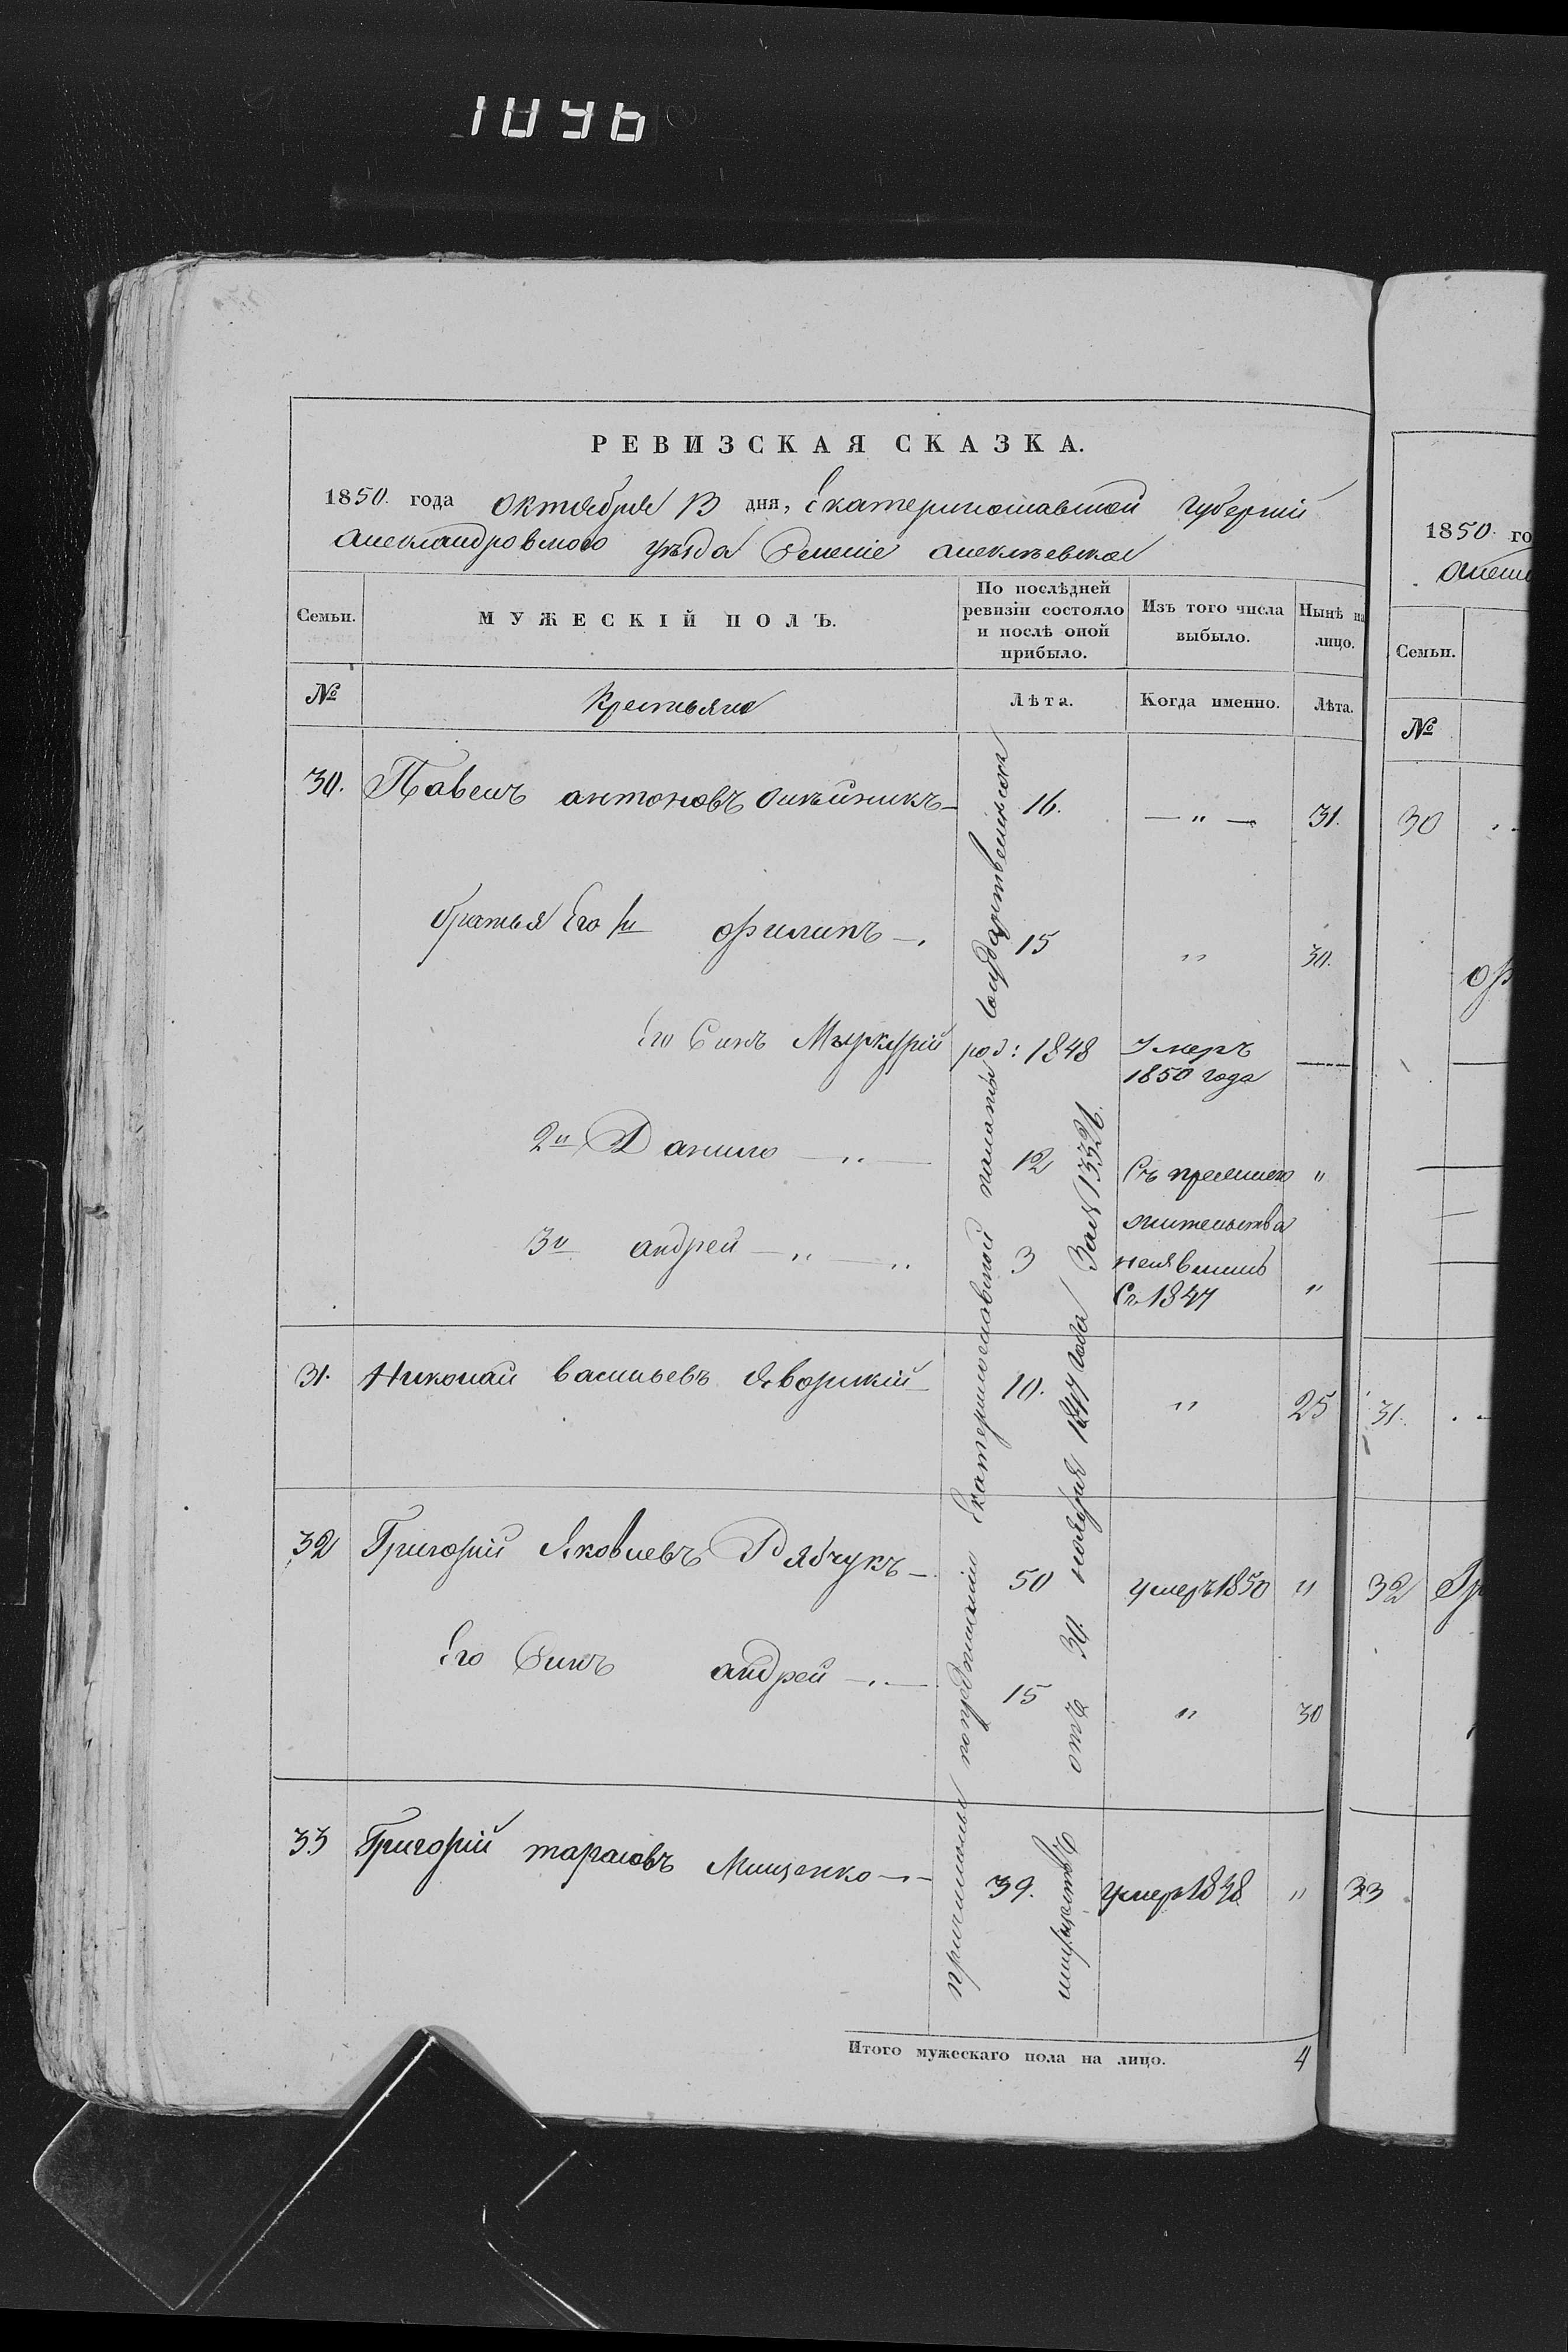 1096
РЕВИЗСКАЯ СКАЗКА.
1850. года Октября 13 дня, Екатеринославской губерніи
Александровского уѣзда Селеніе алексѣевка
Семьи.
МУЖЕСКІЙ ПОЛЪ.
По послѣдней
ревизіи состояло
и послѣ оной
прибыло.
Изъ того числа
выбыло.
Нынѣ на
лицо.
№
Крестьяне
Лѣта.
Когда именно.
Лѣта.
30. Павелъ антоновъ Олѣйникъ 16. — " — 31.
братья Его 1й филипъ 15 " 30.
Его Синъ Мѣркурій род: 1848 Умеръ
1850 года
2й Данило — " — 12 Съ прежнего "
жительства
3й андрей — " — " 3 неявились
Съ 1847 "
31. Николай васильевъ Яворскій 10. " 25
32 Григорій Яковлевъ Рябчукъ 50 умеръ 1850 "
Его Синъ андрей 15 " 30
33 Григорій тарасовъ Мищенко 39. умеръ 1848 "
причислены попредписанію Екатеринославской палаты Государственныхъ
имуществъ отъ 30. ноября 1847 года За № 13326.
Итого мужескаго пола на лицо. 4
1850 го
Семьи.
№
30
31.
32
33